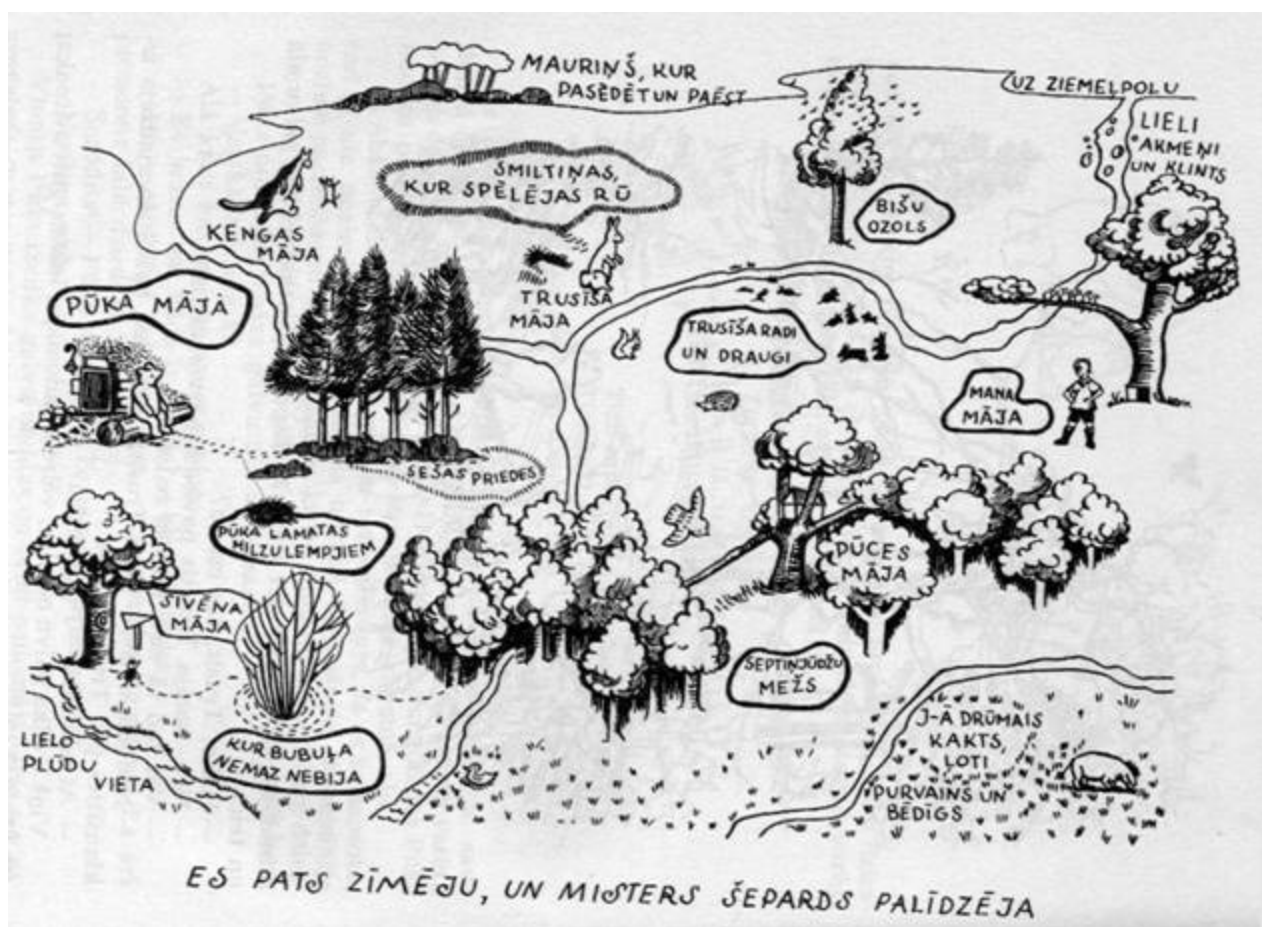 MAURIŅŠ, KUR
PASĒDĒT UN PAĒST
UZ ZIEMEĻPOLU
LIELI
AKMEŅI
UN KLINTS
SMILTIŅAS,
KUR SPĒLĒJAS RŪ
BIŠU
OZOLS
ĶENGAS
MĀJA
PŪKA MĀJA
TRUSĪŠA
MĀJA
TRUSĪŠA RADI
UN DRAUGI
MANA
MĀJA
SEŠAS PRIEDES
PŪKA LAMATAS
MILZULEMPJIEM
PŪCES
MĀJA
SIVĒNA
MĀJA
SEPTIŅJŪDŽU
MEŽS
LIELO
PLŪDU
VIETA
KUR BUBUĻA
NEMAZ NEBIJA
J-Ā DRŪMAIS
KAKTS,
ĻOTI
PURVAINS UN
BĒDĪGS
ES PATS ZĪMĒJU, UN MISTERS ŠEPARDS PALĪDZĒJA